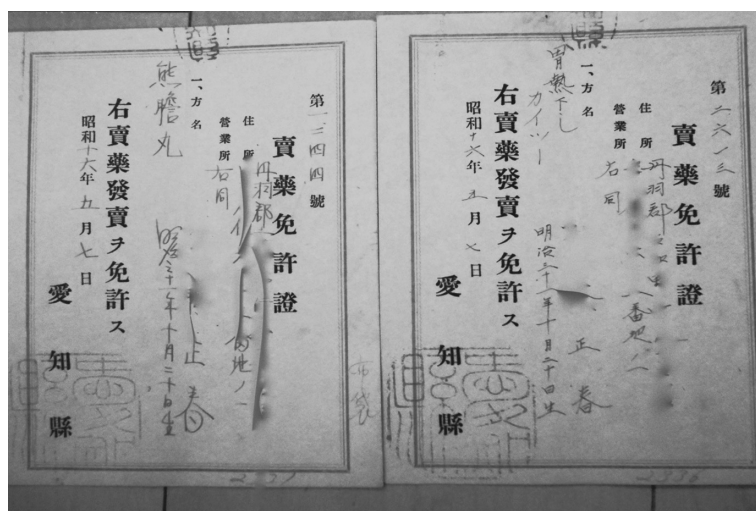 賣藥免許證
第二六一三號
住所 丹羽郡
番地ノ一
營業所 右同
正春
明治三十一年十月二十日生
一、方名
胃熱下し
カイツー
右賣藥發賣ヲ免許ス
昭和十六年五月七日
愛知縣
賣藥免許證
第一三四四號
住所 丹羽郡
番地ノ一
營業所 右同
正春
明治三十一年十月二十日生
一、方名
熊膽丸
右賣藥發賣ヲ免許ス
昭和十六年五月七日
愛知縣
布袋